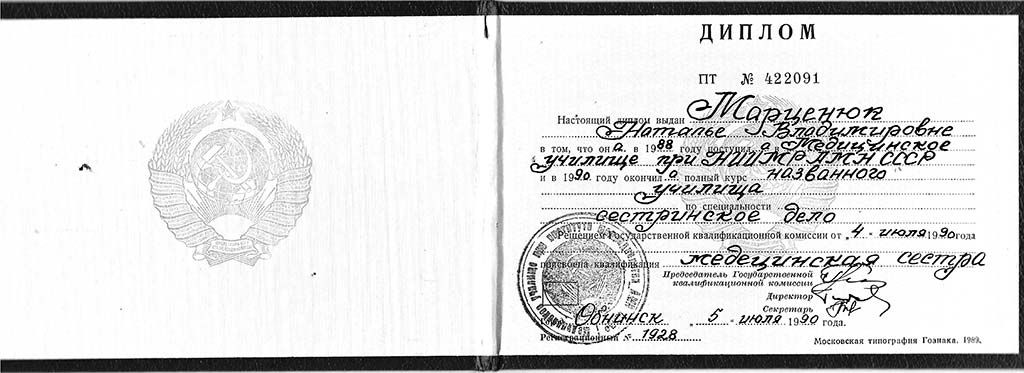 ДИПЛОМ
ПТ № 422091
Настоящий диплом выдан Марценюк
Наталье Владимировне
в том, что она в 1988 году поступила в Медицинское
училище при НИИМР АМН СССР
и в 1990 году окончила полный курс названного
училища
по специальности
сестринское дело
Решением Государственной квалификационной комиссии от „4" июля 1990 года
присвоена квалификация медецинская сестра
Председатель Государственной
квалификационной комиссии
Директор
Секретарь
г. Обнинск „5" июля 1990 года.
Регистрационный № 1928
Московская типография Гознака. 1989.